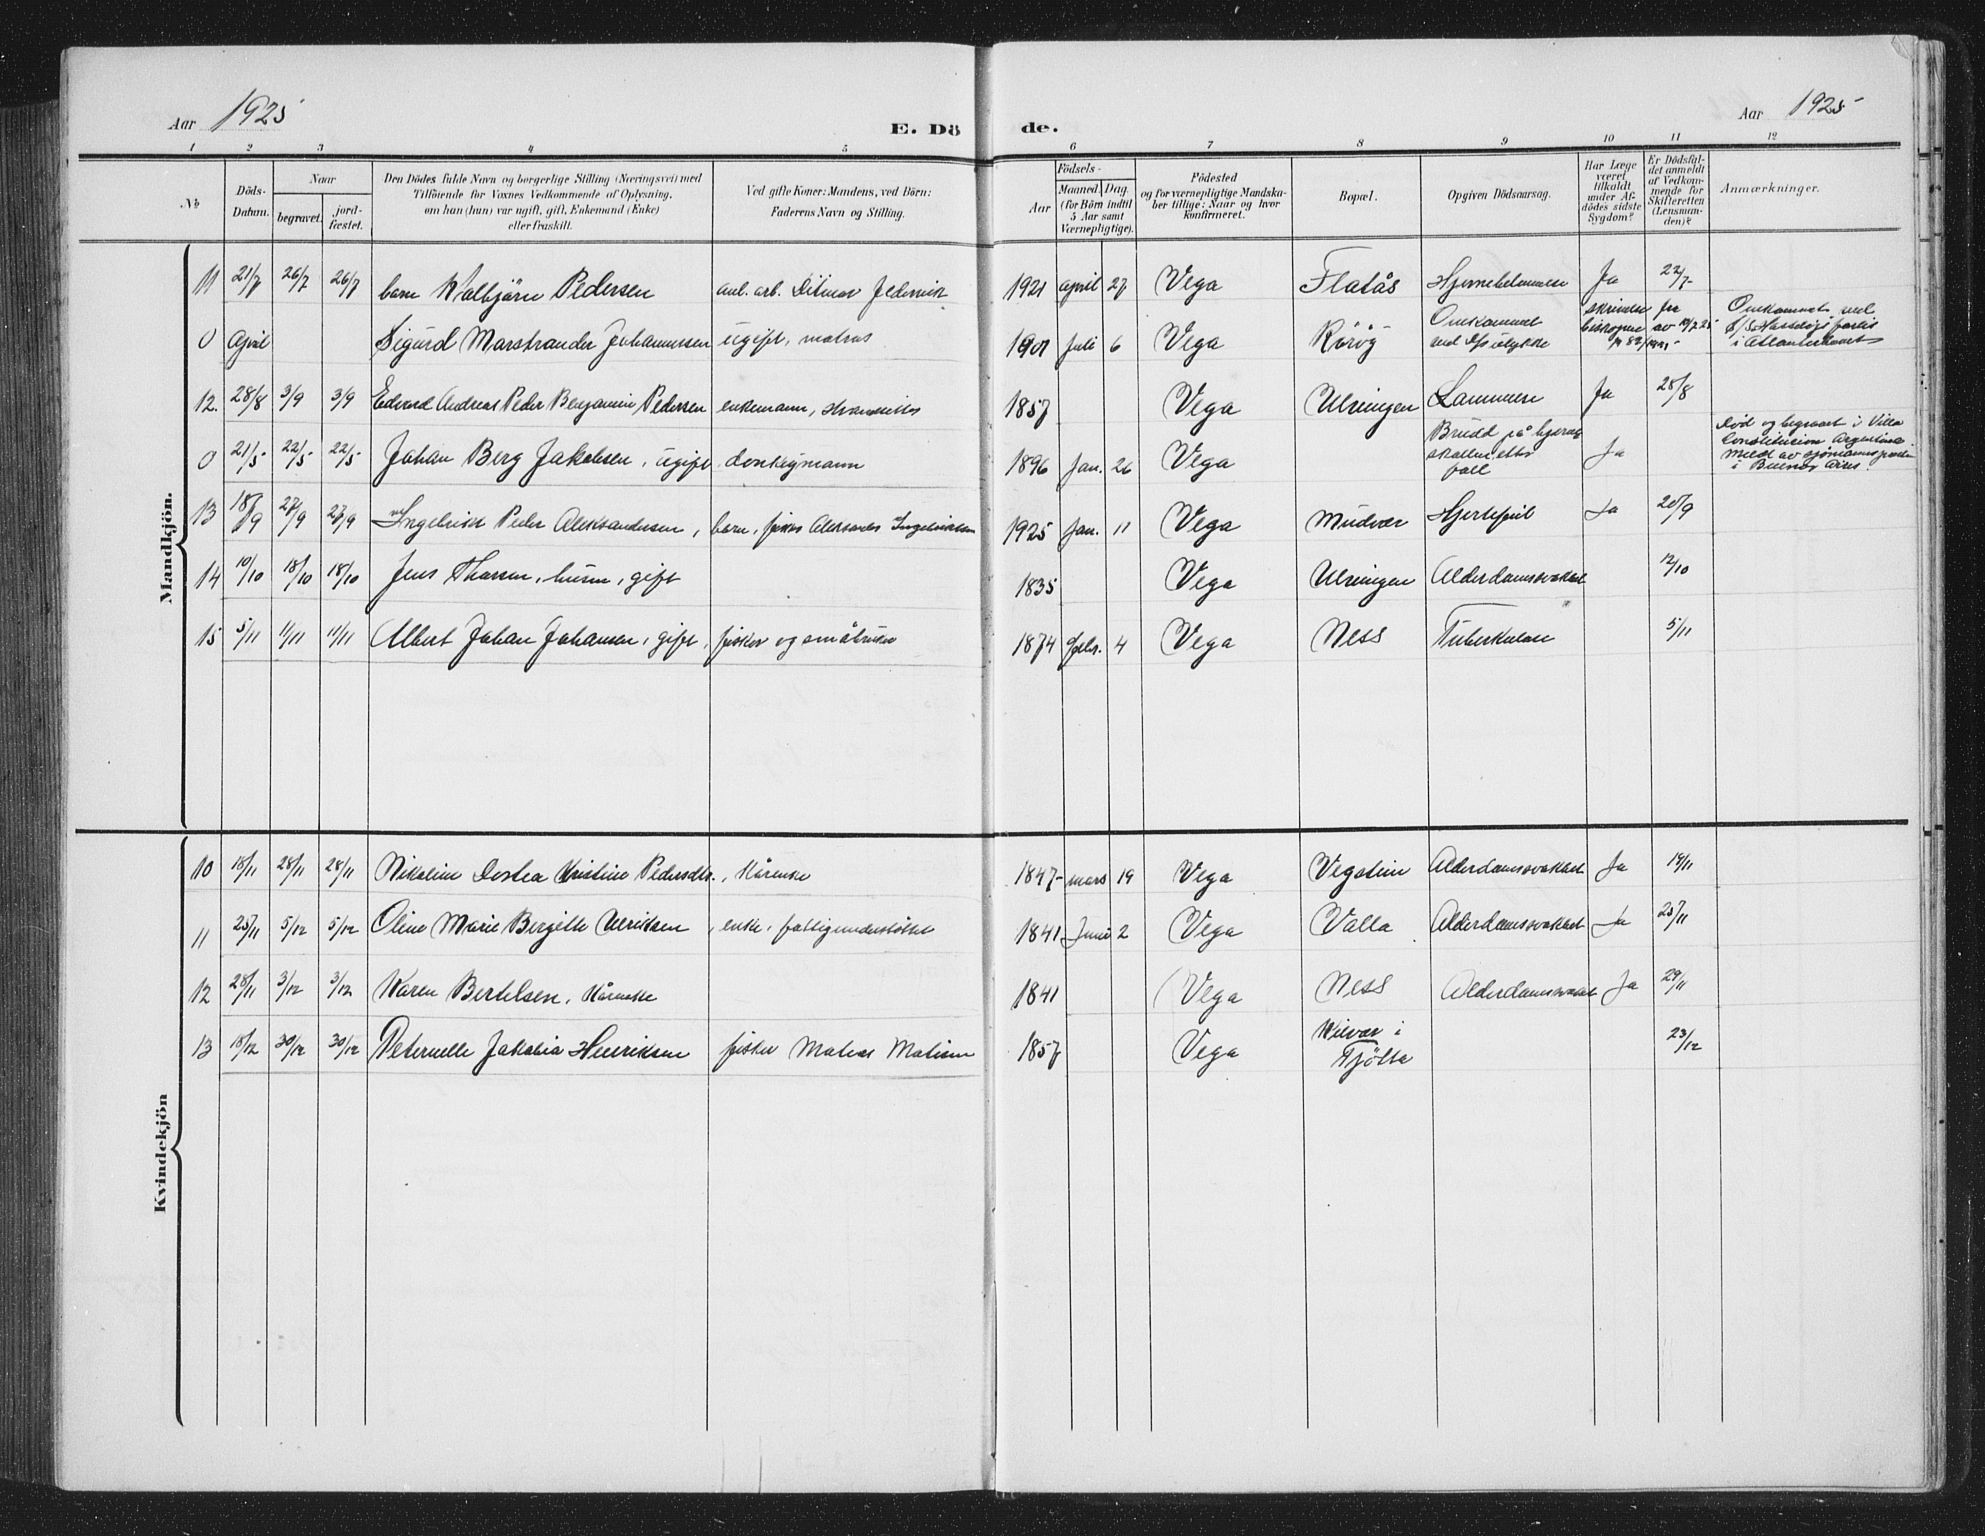 Aar 1925
E. Dö
de.
Aar 1925
1 2 3 4 5 6 7 8 9 10 11 12
№
Döds-
Datum.
Naar
begravet.
jord-
fæstet.
Den Dödes fulde Navn og borgerlige Stilling (Næringsvei) med
Tilföiende for Voxnes Vedkommende af Oplysning,
om han (hun) var ugift, gift, Enkemand (Enke)
eller fraskilt.
Ved gifte Koner: Mandens, ved Börn:
Faderens Navn og Stilling.
Födsels-
Aar
Maaned. Dag.
(for Börn indtil
5 Aar samt
Værnepligtige).
Födested
og for værnepligtige Mandska-
ber tillige: Naar og hvor
konfirmeret.
Bopæl.
Opgiven Dödsaarsag.
Har Læge
været
tilkaldt
under Af-
dödes sidste
Sygdom?
Er Dödsfal-
det anmeldt
af Vedkom-
mende for
Skifteretten
(Lensman-
den)?
Anmærkninger.
Mandkjön.
11 21/7 26/7 26/7 barn Pedersen 1921 april 27 Vega Flatås Ja 22/7
0 April Sigurd Marstrander Johannessen ugift, matros 1901 Juli 6 Vega Rörög Omkommet
Omkommet ved
i Atlanterhavet
12. 28/8 3/9 3/9 Edvard Andreas Peder Benjamin Pedersen enkemann, 1857 Vega Ulvingen Ja 28/8
0 21/5 22/5 22/5 Johan Berg Jakobsen, ugift donkeymann 1896 Jan. 26 Vega Brudd på hjerne
skallen efter
fall Ja
död og begravet i Villa
Constitucion Argentina
meld av sjömannspresten
i Buenos Aires.
13 18/9 27/9 27/9 Ingebrikt Peder Aleksandersen, barn, fisker Aleksander Ingebriktsen 1925 Jan. 11 Vega Mudvær Hjertefeil Ja 20/9
14 10/10 18/10 18/10 Jens Thorsen, husm, gift 1835 Vega Ulvingen Alderdomssvakhet 12/10
15 5/11 11/11 11/11 Albert Johan Johansen, gift, fisker og småbruker 1874 febr. 4 Vega Ness Tuberkulose 5/11
Kvindekjön
10 18/11 28/11 28/11 Nikoline Dortea Kristine Pedersdtr., Kårenke 1847 mars 19 Vega Vegstein Alderdomssvakhet Ja 19/11
11 25/11 5/12 5/12 Oline Marie Bergitte Ulriksen, enke, fattigunderstöttet 1841 Juni 2 Vega Valla Alderdomssvakhet Ja 25/11
12 28/11 3/12 3/12 Karen Bertelsen, Kårenke 1841 Vega Ness Alderdomssvakhet Ja 29/11
13 18/12 30/12 30/12 Peternelle Jakobia Henriksen fisker 1857 Vega i
Tjötta 23/12